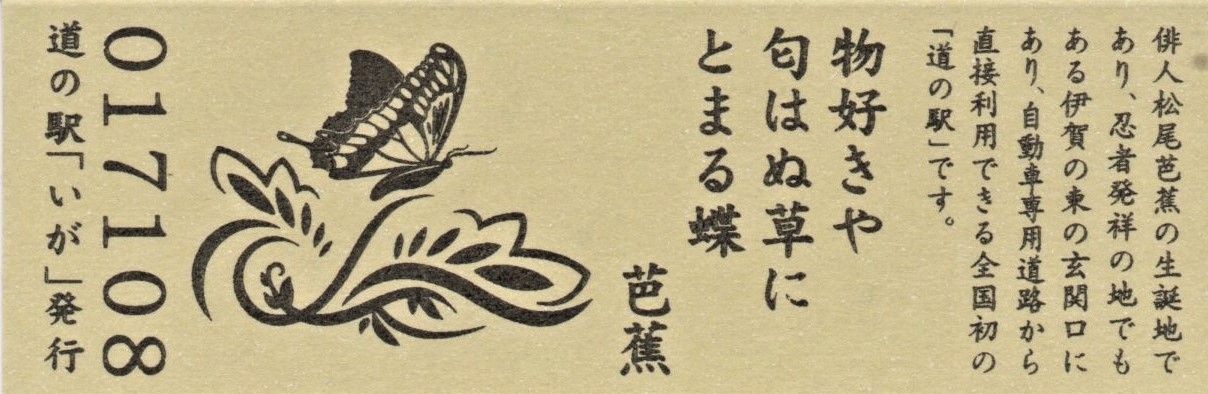 俳人松尾芭蕉の生誕地で
あり、忍者発祥の地でも
ある伊賀の東の玄関口に
あり、自動車専用道路から
直接利用できる全国初の
「道の駅」です。
物好きや
匂はぬ草に
とまる蝶
芭蕉
017108
道の駅「いが」発行